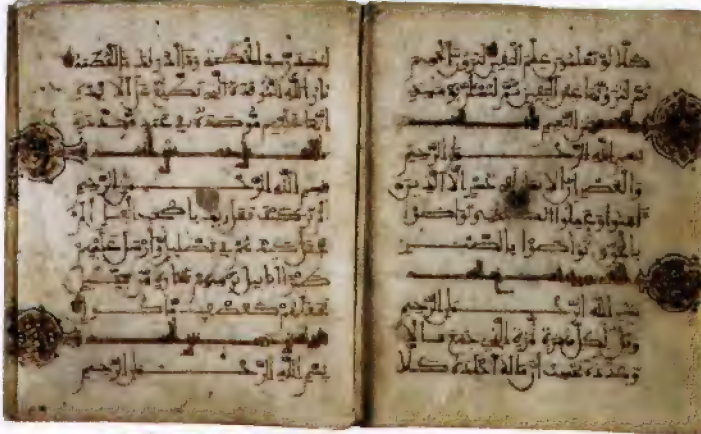 كلا لو تعلمون علم اليقين لترون الجحيم
ثم لترونها عين اليقين ثم لتسئلن يومئذ
عن النعيم
بسم الله الرحمن الرحيم
والعصر ان الانسن لفي خسر الا الذين
ءامنوا وعملوا الصلحت وتواصوا
بالحق وتواصوا بالصبر
بسم الله الرحمن الرحيم
ويل لكل همزة لمزة الذي جمع مالا
وعدده يحسب ان ماله اخلده كلا
لينبذن في الحطمة وما ادريك ما الحطمة
نار الله الموقدة التي تطلع على الافئدة
انها عليهم مؤصدة في عمد ممددة
بسم الله الرحمن الرحيم
الم تر كيف فعل ربك باصحب الفيل الم
يجعل كيدهم في تضليل وارسل عليهم
طيرا ابابيل ترميهم بحجارة من سجيل
فجعلهم كعصف ماكول
بسم الله الرحمن الرحيم